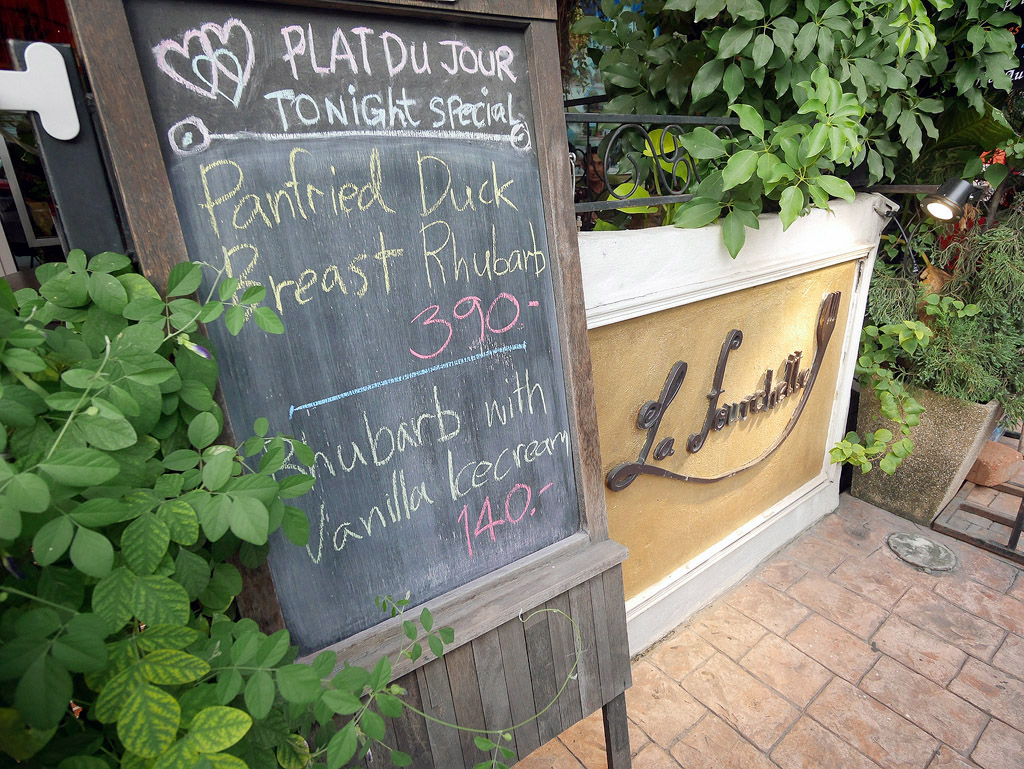 PLAT DU JOUR
TONIGHT SPECIAL
Panfried Duck
Breast Rhubarb
390.-
Rhubarb with
Vanilla Icecream
140.-
La Fourchette